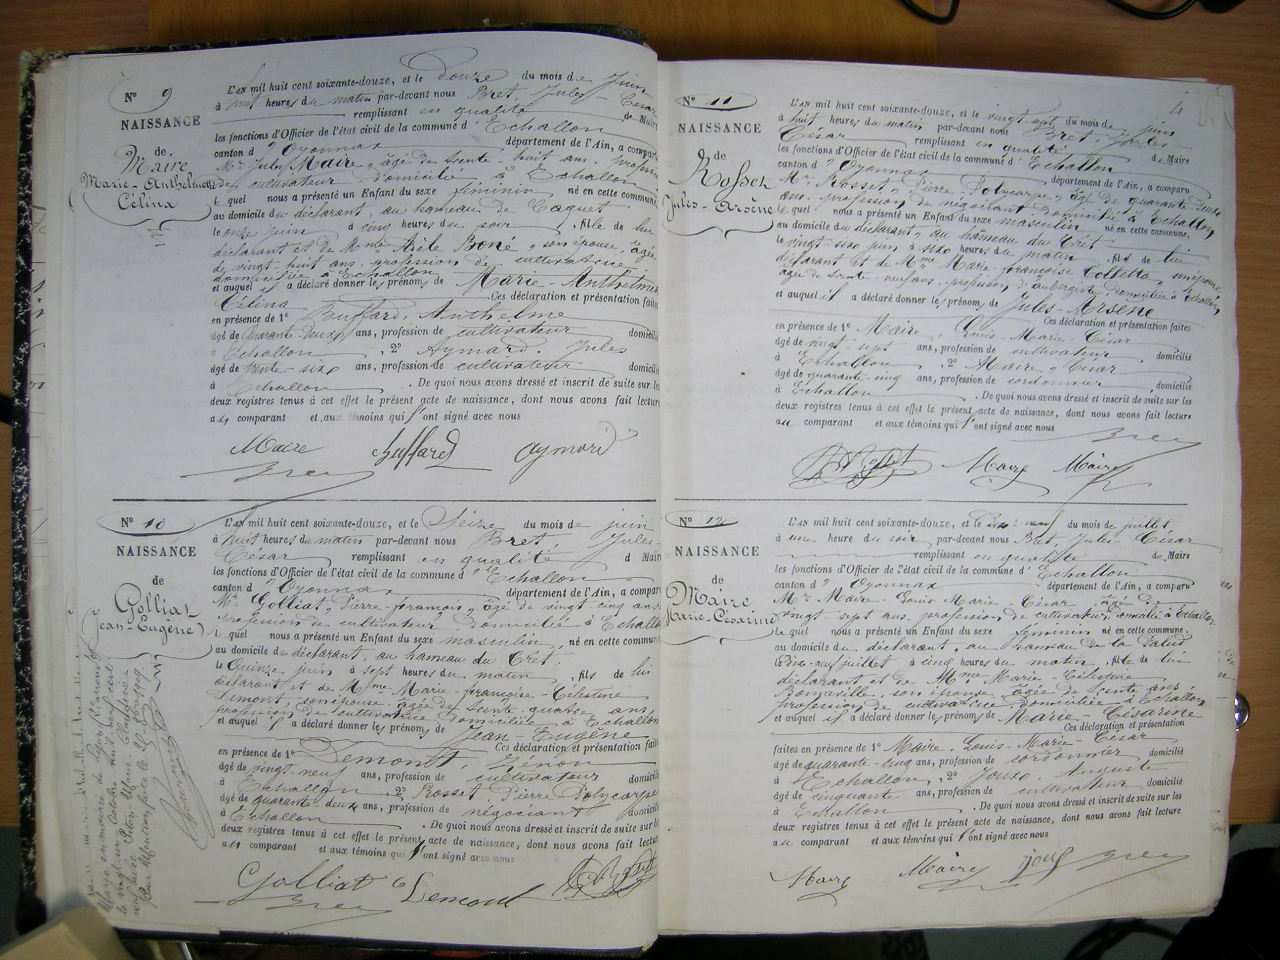 N° 9
NAISSANCE
de
Maire
Marie-Anthelmette
Célina
L'AN mil huit cent soixante-douze, et le Douze du mois de Juin
à huit heures du matin par-devant nous Bret, Jules-César
remplissant en qualité de Maire
les fonctions d'Officier de l'état civil de la commune d'Echallon
canton d'Oyonnax département de l'Ain, a comparu
Mr Jules Maire, âgé de trente-huit ans, profession
de cultivateur domicilié à Echallon
le quel nous a présenté un Enfant du sexe féminin né en cette commune
au domicile du déclarant, au hameau de
le onze juin à cinq heures du soir, fille de lui
déclarant et de son épouse, âgée
de vingt-huit ans, profession de cultivatrice
domiciliée à Echallon
et auquel il a déclaré donner les prénoms de Marie-Anthelmette
Célina Ces déclaration et présentation faites
en présence de 1° Buffard, Anthelme
âgé de quarante-deux ans, profession de cultivateur domicilié
à Echallon, 2° Aymard, Jules
âgé de trente-six ans, profession de cultivateur domicilié
à Echallon. De quoi nous avons dressé et inscrit de suite sur les
deux registres tenus à cet effet le présent acte de naissance, dont nous avons fait lecture
au comparant et aux témoins qui l'ont signé avec nous
Maire Buffard Aymard
Bret
N° 10
NAISSANCE
de
Golliat
Jean-Eugène
L'AN mil huit cent soixante-douze, et le Seize du mois de juin
à huit heures du matin par-devant nous Bret, Jules-
César remplissant en qualité de Maire
les fonctions d'Officier de l'état civil de la commune d'Echallon
canton d'Oyonnax département de l'Ain, a comparu
Mr Golliat, Pierre-François, âgé de vingt-cinq ans
profession de cultivateur domicilié à Echallon
le quel nous a présenté un Enfant du sexe masculin, né en cette commune
au domicile du déclarant, au hameau du Crêt
le Quinze juin à sept heures du matin, fils de lui
déclarant et de Mme Marie-Françoise-Célestine
Lemont, son épouse, âgée de trente-quatre ans,
profession de cultivatrice domiciliée à Echallon
et auquel il a déclaré donner les prénoms de Jean-Eugène
Ces déclaration et présentation faites
en présence de 1° Lemont, Zénon
âgé de vingt-neuf ans, profession de cultivateur domicilié
à Echallon, 2° Rosset Pierre Polycarpe
âgé de quarante-deux ans, profession de négociant domicilié
à Echallon. De quoi nous avons dressé et inscrit de suite sur les
deux registres tenus à cet effet le présent acte de naissance, dont nous avons fait lecture
au comparant et aux témoins qui l'ont signé avec nous
Golliat Lemont Rosset
Bret
N° 11
NAISSANCE
de
Rosset
Jules-Arsène
4
L'AN mil huit cent soixante-douze, et le vingt-sept du mois de juin
à huit heures du matin par-devant nous Bret, Jules
César remplissant en qualité de Maire
les fonctions d'Officier de l'état civil de la commune d'Echallon
canton d'Oyonnax département de l'Ain, a comparu
Mr Rosset, Pierre Polycarpe, âgé de quarante-deux
ans, profession de négociant domicilié à Echallon,
le quel nous a présenté un Enfant du sexe masculin né en cette commune,
au domicile du déclarant, au hameau du Crêt
le vingt-six juin à six heures du matin, fils de lui
déclarant et de Mme Marie-Françoise Colletta, son épouse
âgée de trente-neuf ans, profession d'aubergiste, domiciliée à Echallon,
et auquel il a déclaré donner les prénoms de Jules-Arsène
Ces déclaration et présentation faites
en présence de 1° Maire, Louis-Marie-César
âgé de vingt-sept ans, profession de cultivateur domicilié
à Echallon, 2° Maire, César
âgé de quarante-cinq ans, profession de cordonnier, domicilié
à Echallon. De quoi nous avons dressé et inscrit de suite sur les
deux registres tenus à cet effet le présent acte de naissance, dont nous avons fait lecture
au comparant et aux témoins qui l'ont signé avec nous
Bret
Rosset Maire Maire
N° 12
NAISSANCE
de
Maire
Marie-Césarine
L'AN mil huit cent soixante-douze, et le dix-neuf du mois de juillet
à une heure du soir par-devant nous Bret, Jules César
remplissant en qualité de Maire
les fonctions d'Officier de l'état civil de la commune d'Echallon
canton d'Oyonnax département de l'Ain, a comparu
Mr Maire Louis Marie César, âgé de
vingt-sept ans, profession de cultivateur, domicilié à Echallon,
le quel nous a présenté un Enfant du sexe féminin né en cette commune
au domicile du déclarant, au hameau de la Palud
le Dix-neuf juillet à cinq heures du matin, fille de lui
déclarant et de Mme Marie-Célestine
Bonneville, son épouse, âgée de trente ans,
profession de cultivatrice domiciliée à Echallon,
et auquel il a déclaré donner les prénoms de Marie-Césarine
Ces déclaration et présentation
faites en présence de 1° Maire, Louis-Marie-César
âgé de quarante-cinq ans, profession de cordonnier domicilié
à Echallon, 2° Joux, Auguste
âgé de cinquante ans, profession de cultivateur domicilié
à Echallon. De quoi nous avons dressé et inscrit de suite sur les
deux registres tenus à cet effet le présent acte de naissance, dont nous avons fait lecture
au comparant et aux témoins qui l'ont signé avec nous
Maire Maire Joux Bret